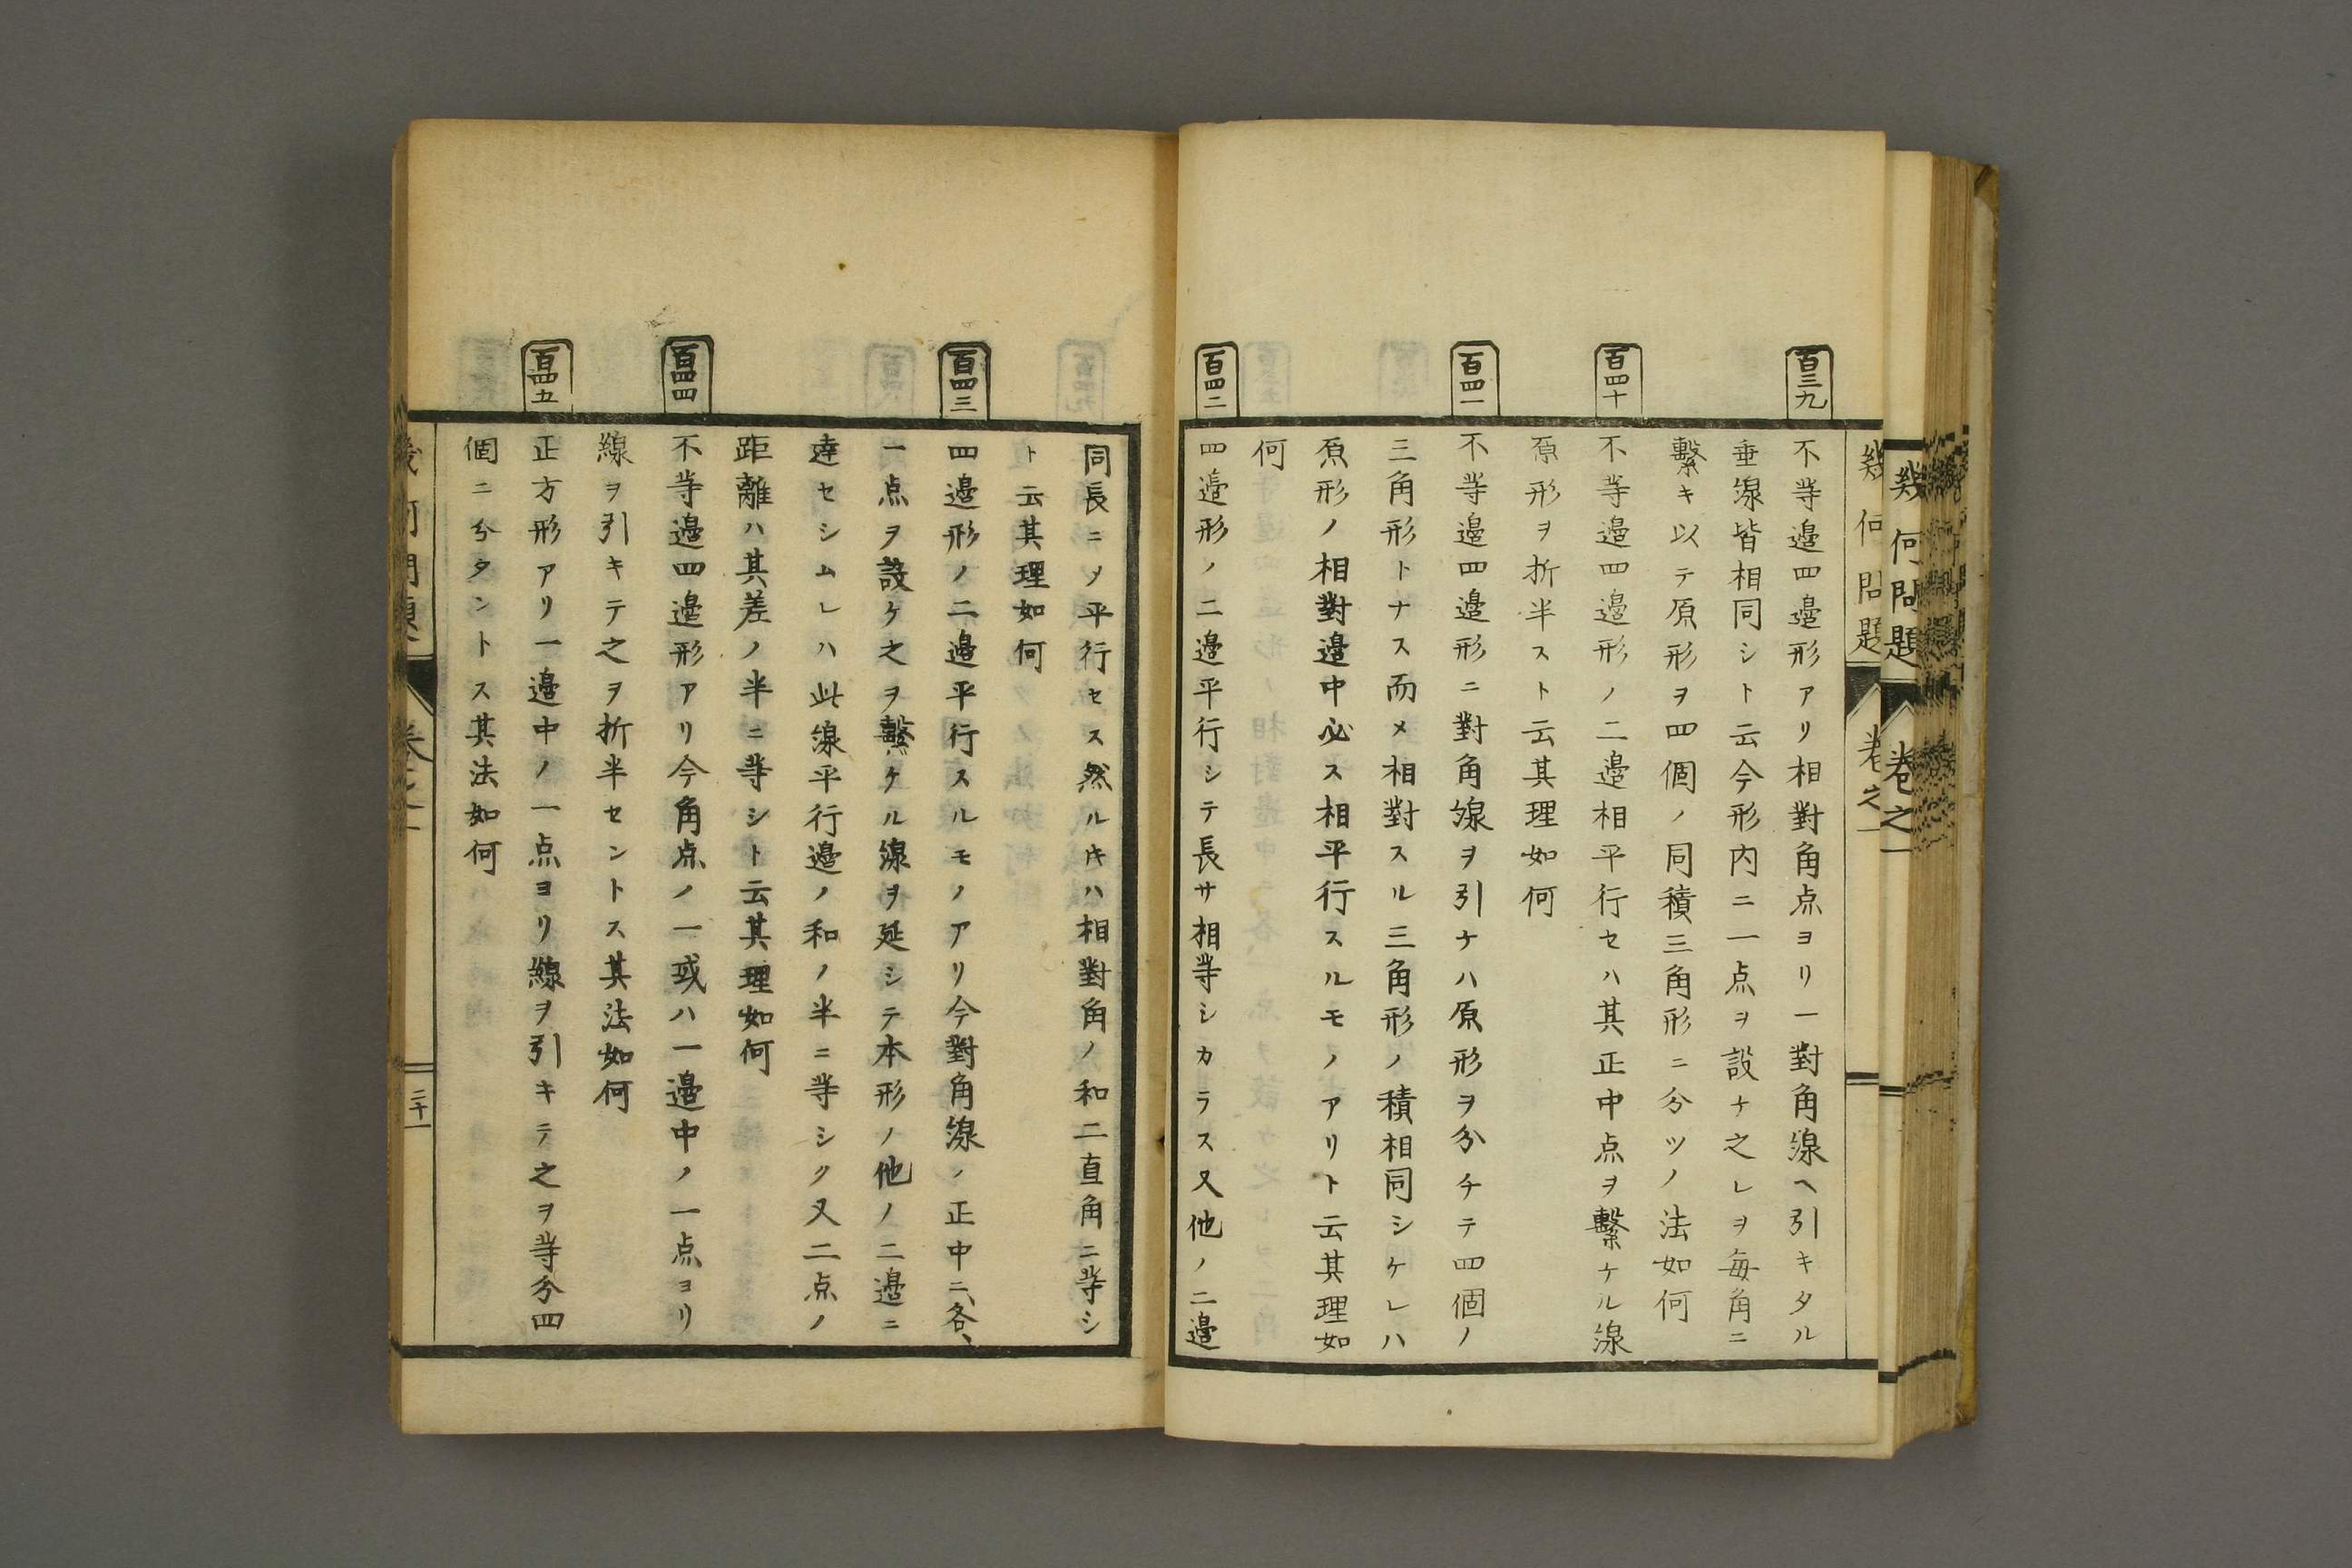 幾何問題
巻之一
百三九
不等邉四邉形アリ相對角点ヨリ一對角線ヘ引キタル
垂線皆相同シト云今形内ニ一点ヲ設ケ之レヲ毎角ニ
繋キ以テ原形ヲ四個ノ同積三角形ニ分ツノ法如何
百四十
不等邉四邉形ノ二邉相平行セハ其正中点ヲ繋ケル線
原形ヲ折半スト云其理如何
百四一
不等邉四邉形ニ對角線ヲ引ケハ原形ヲ分チテ四個ノ
三角形トナス而メ相對スル三角形ノ積相同シケレハ
原形ノ相對邉中必ス相平行スルモノアリト云其理如
何
百四二
四邉形ノ二邉平行シテ長サ相等シカラス又他ノ二邉
同長ニソ平行セス然ル片ハ相對角ノ和二直角ニ等シ
ト云其理如何
百四三
四邉形ノ二邉平行スルモノアリ今對角線ノ正中ニ各、
一点ヲ設ケ之ヲ繋ケル線ヲ延シテ本形ノ他ノ二邉ニ
達セシムレハ此線平行邉ノ和ノ半ニ等シク又二点ノ
距離ハ其差ノ半ニ等シト云其理如何
百四四
不等邉四邉形アリ今角点ノ一或ハ一邉中ノ一点ヨリ
線ヲ引キテ之ヲ折半セントス其法如何
百四五
正方形アリ一邉中ノ一点ヨリ線ヲ引キテ之ヲ等分四
個ニ分タントス其法如何
幾何問題
巻之一
二十一